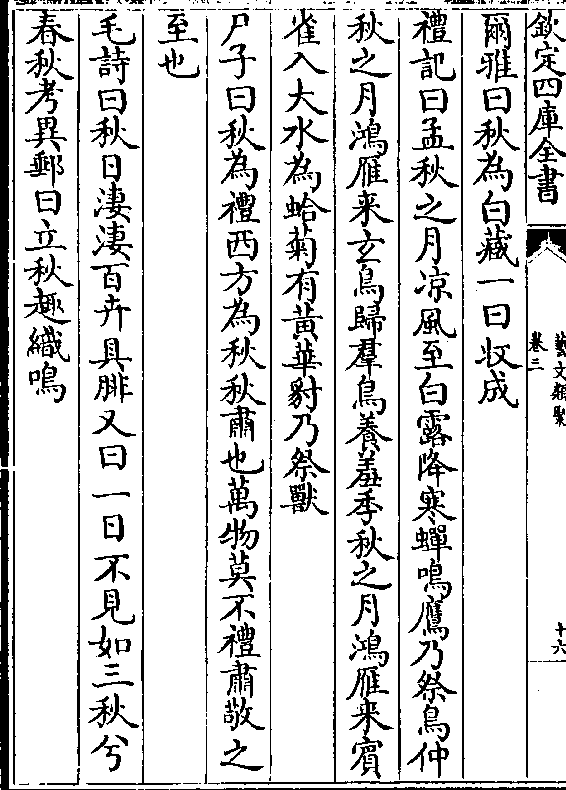 欽定四庫全書
藝文類聚
卷三
十六
爾雅曰秋為白藏一曰收成
禮記曰孟秋之月凉風至白露降寒蟬鳴鷹乃祭鳥仲
秋之月鴻雁来玄鳥歸羣鳥養羞季秋之月鴻雁来賓
雀入大水為蛤菊有黃華豺乃祭獸
尸子曰秋為禮西方為秋秋肅也萬物莫不禮肅敬之
至也
毛詩曰秋日淒淒百卉具腓又曰一日不見如三秋兮
春秋考異郵曰立秋趣織鳴